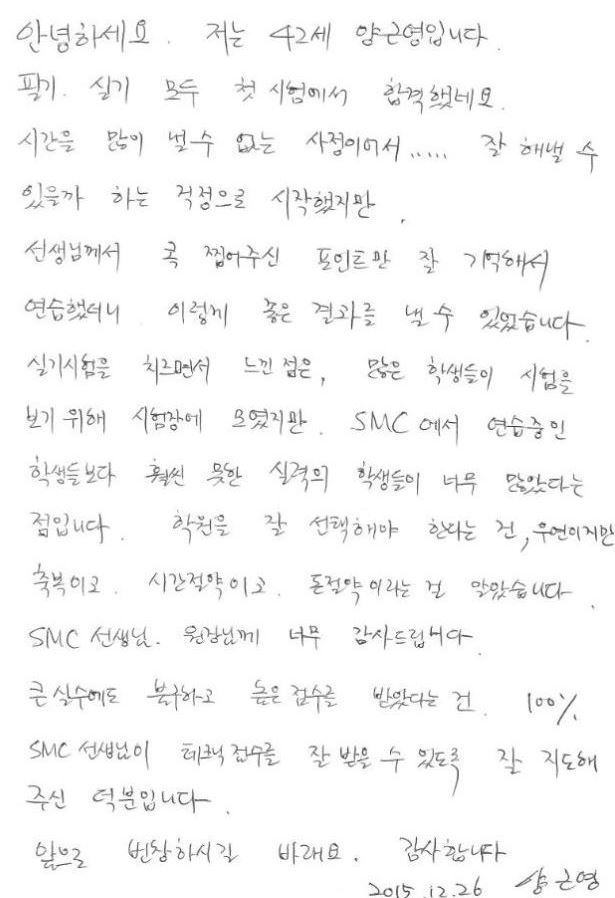 안녕하세요. 저는 42세 양근영입니다.
필기. 실기 모두 첫 시험에서 합격했네요.
시간을 많이 낼수 없는 사정이어서..... 잘 해낼 수
있을까 하는 걱정으로 시작했지만,
선생님께서 콕 찝어주신 포인트만 잘 기억해서
연습했더니 이렇게 좋은 결과를 낼 수 있었습니다.
실기시험을 치르면서 느낀 점은, 많은 학생들이 시험을
보기 위해 시험장에 모였지만. SMC에서 연습중인
학생들보다 훨씬 못한 실력의 학생들이 너무 많았다는
점입니다. 학원을 잘 선택해야 한다는 건, 우연이지만
축복이고. 시간절약이고. 돈절약이라는 걸 알았습니다.
SMC 선생님. 원장님께 너무 감사드립니다.
큰 실수에도 불구하고 높은 점수를 받았다는 건. 100%
SMC 선생님이 테크닉 점수를 잘 받을 수 있도록 잘 지도해
주신 덕분입니다.
앞으로 번창하시길 바래요. 감사합니다
2015.12.26 양근영